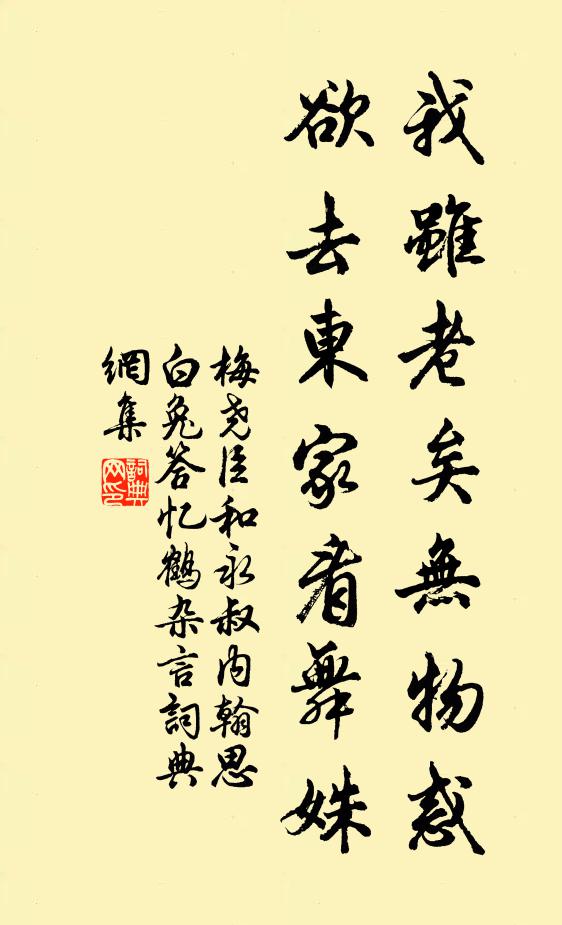 我雖老矣無物惑
欲去東家看舞姝
梅尧臣和永叔内翰思
白兔答忆鶴杂言詞典
網集
詞典网印